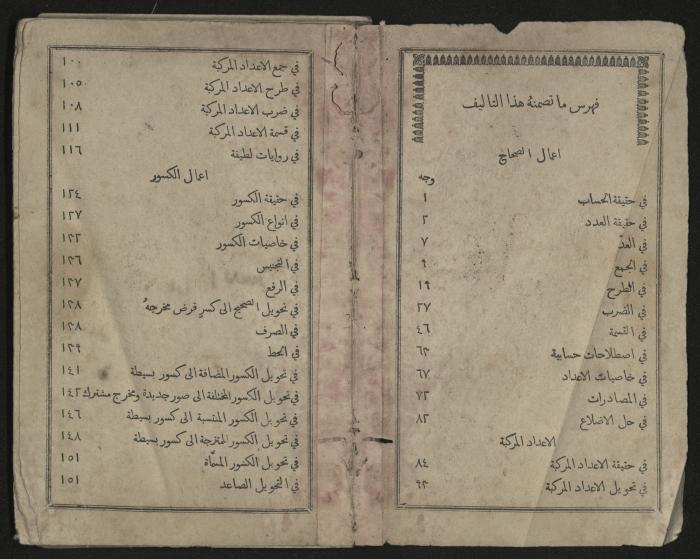 فهرس ما تضمنهُ هذا التاليف
اعمال الصحاح
وجه
في حقيقة الحساب ١
في حقيقة العدد ٢
في العدّ ٧
في الجمع ٩
في الطرح ١٩
في الضرب ٢٧
في القسمة ٤٦
في اصطلاحات حسابية ٦٣
في خاصيات الاعداد ٦٧
في المصادرات ٧٣
في حل الاضلاع ٨٢
الاعداد المركبة
في حقيقة الاعداد المركبة ٨٤
في تحويل الاعداد المركبة ٩٣
في جمع الاعداد المركبة ١٠٠
في طرح الاعداد المركبة ١٠٥
في ضرب الاعداد المركبة ١٠٨
في قسمة الاعداد المركبة ١١١
في روايات لطيفة ١١٦
اعمال الكسور
في حقيقة الكسور ١٢٤
في انواع الكسور ١٢٧
في خاصيات الكسور ١٣٢
في التجنيس ١٣٦
في الرفع ١٣٧
في تحويل الصحيح الى كسرٍ فرض مخرجهُ ١٣٨
في الصرف ١٣٨
في الحط ١٣٩
في تحويل الكسور المضافة الى كسور بسيطة ١٤١
في تحويل الكسور المختلفة الى صور جديدة ومخرج مشترك ١٤٢
في تحويل الكسور المنتسبة الى كسور بسيطة ١٤٦
في تحويل الكسور الممتزجة الى كسور بسيطة ١٤٨
في تحويل الكسور المسمّاة ١٥١
في التحويل الصاعد ١٥١